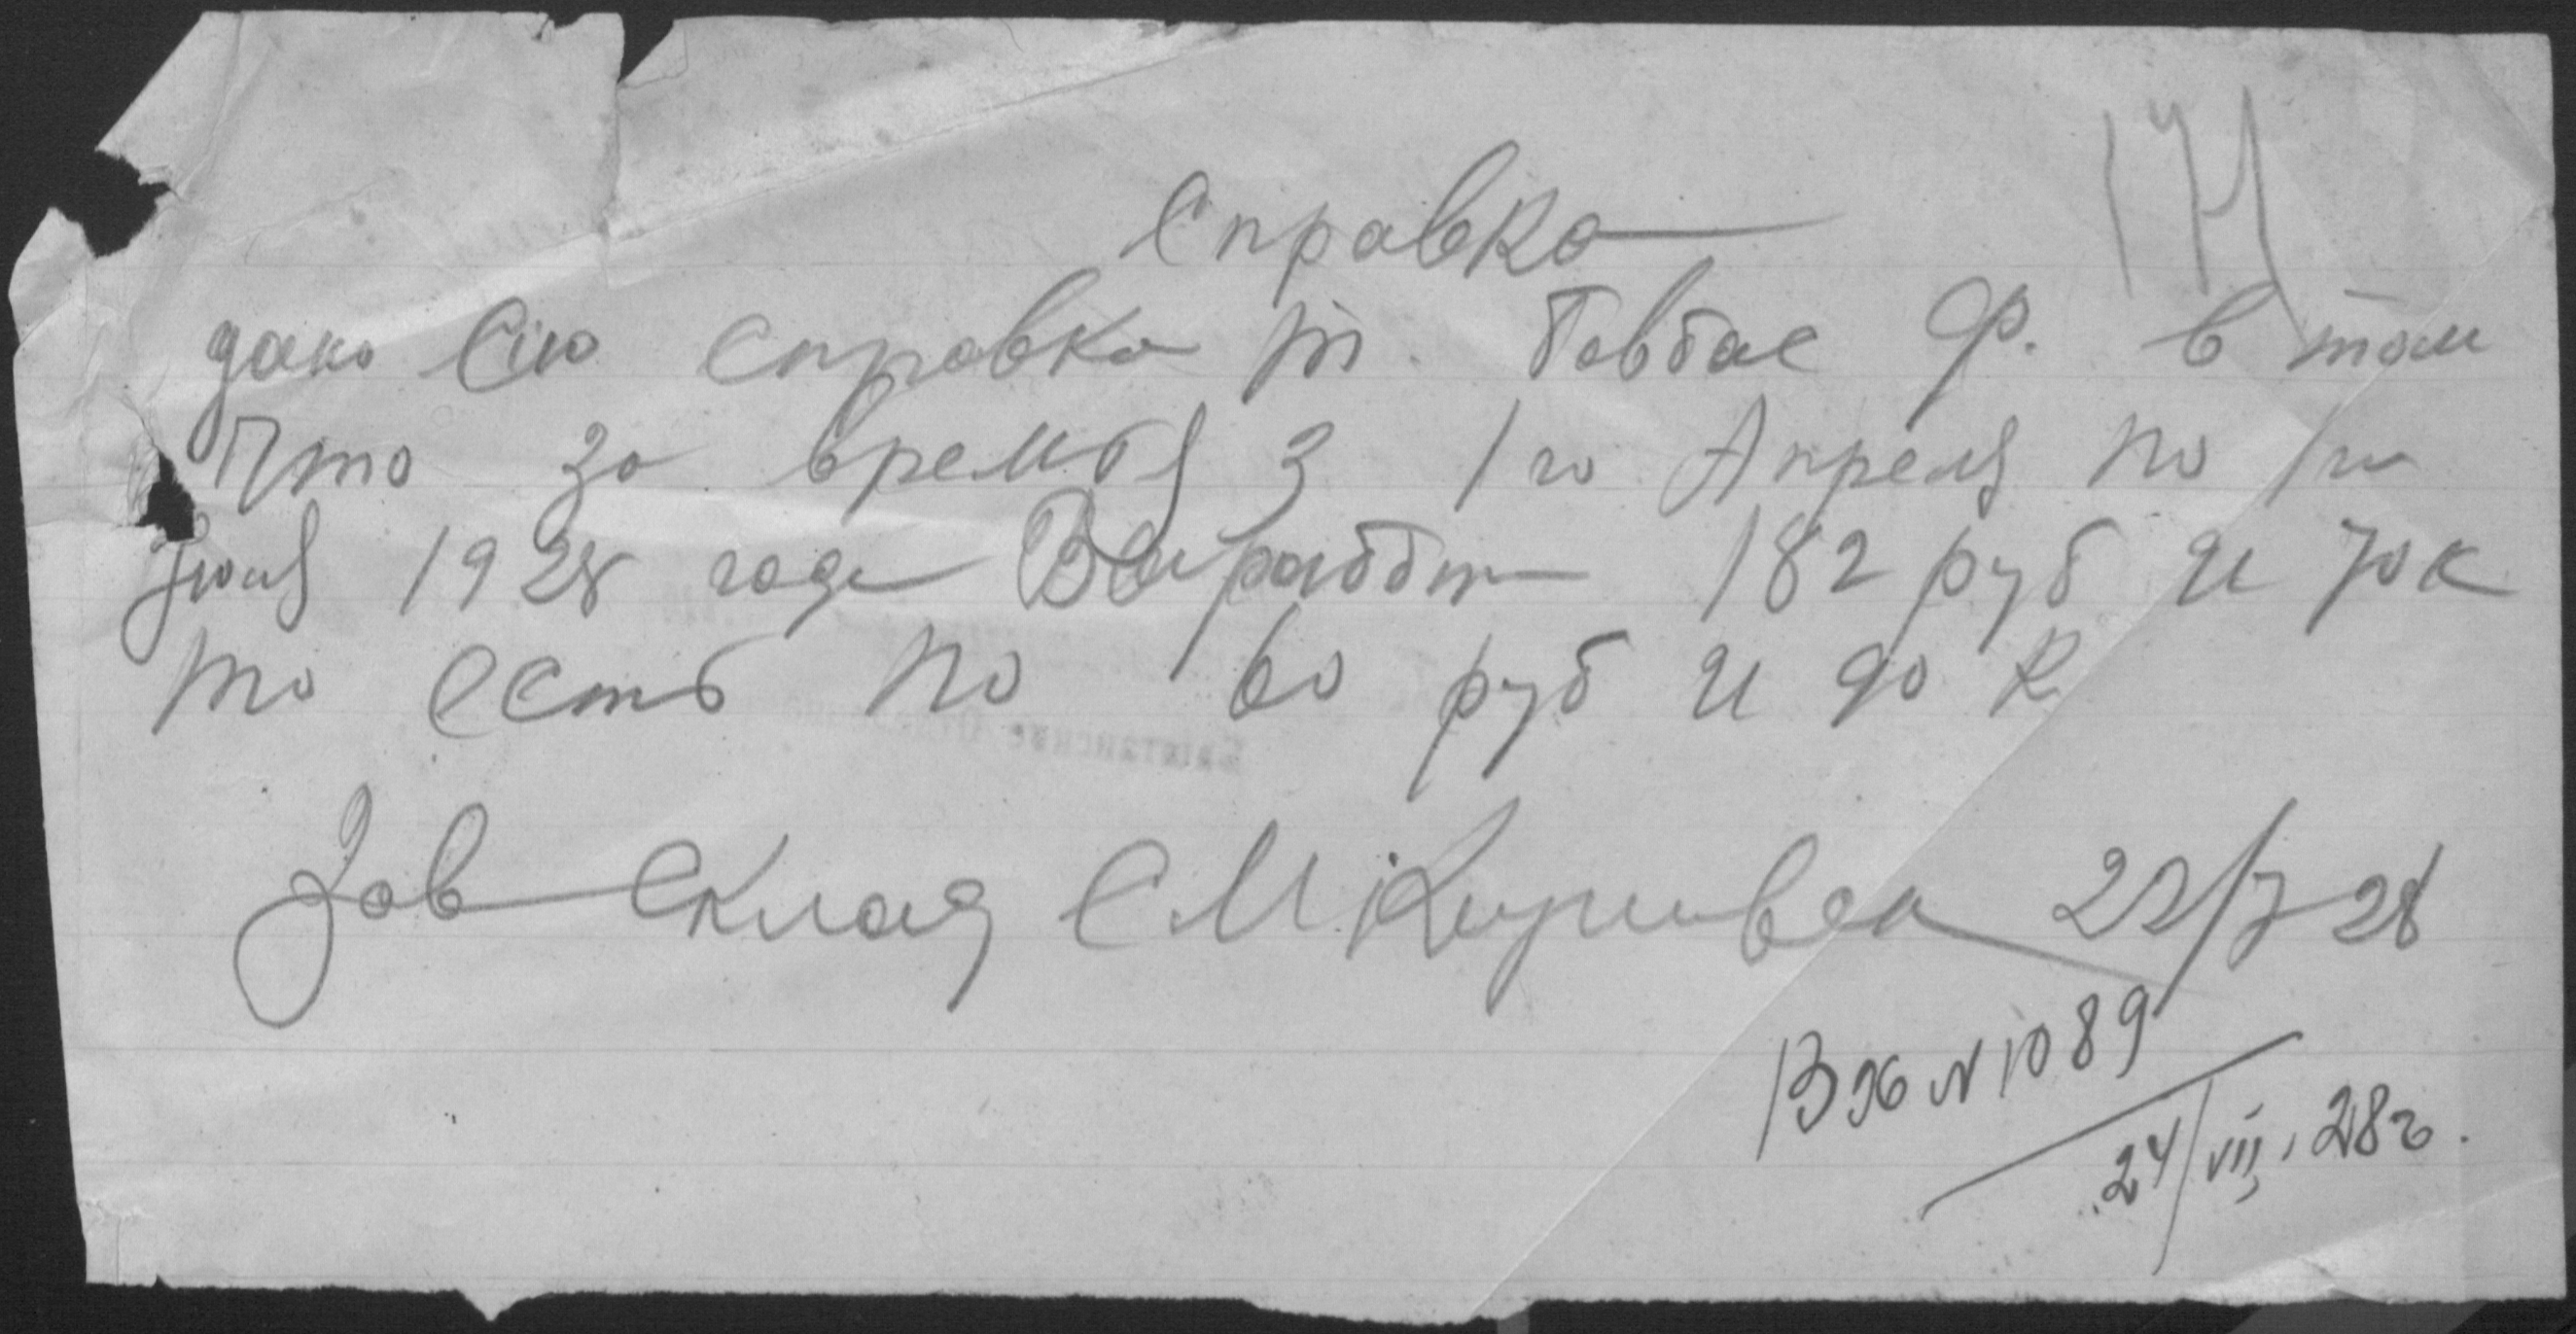 171
Справка
дано сию справка т. Бовбас Ф. в том
что за времья з 1го Апреля по 1го
Июля 1928 года Выработ 182 руб и 70 к
то есть по 60 руб и 90 к
Зав Склад С М 22/7 28
Вх № 1089
24/VII, 28 г.